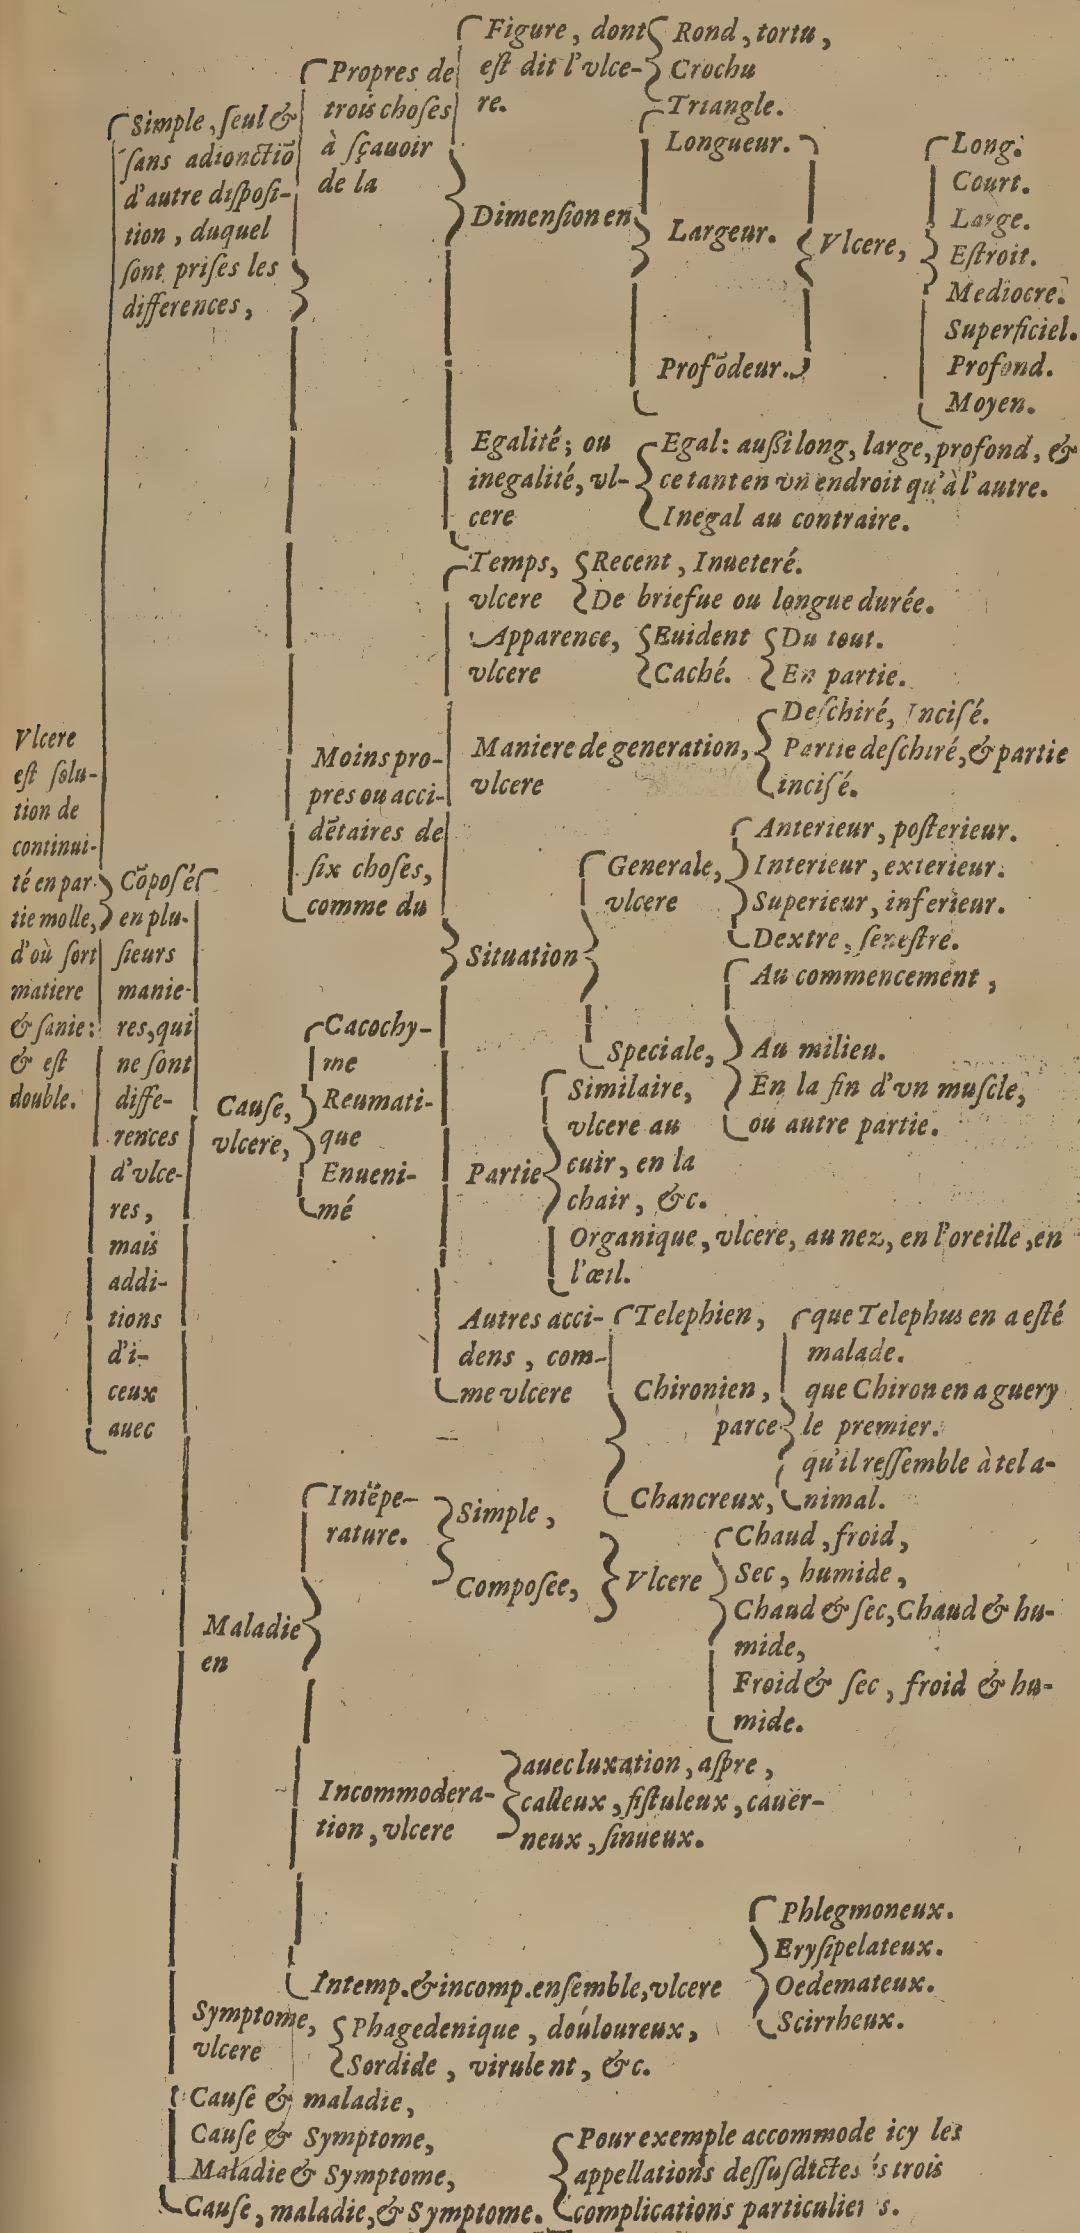 Vlcere
eſt ſolu-
tion de
continui-
té en par-
tie molle,
d'où ſort
matiere
& ſanie:
& eſt
double.
Simple, ſeul &
ſans adionctiõ
d'autre diſpoſi-
tion, duquel
ſont priſes les
differences,
Propres de
trois choſes
à ſçauoir
de la
Figure, dont
eſt dit l'vlce-
re.
Rond, tortu,
Crochu
Triangle.
Dimenſion en
Longueur.
Largeur.
Profõdeur.
Vlcere,
Long.
Court.
Large.
Eſtroit.
Mediocre.
Superficiel.
Profond.
Moyen.
Egalité; ou
inegalité, vl-
cere
Egal: außi long, large, profond, &
ce tant en vn endroit qu'à l'autre.
Inegal au contraire.
Moins pro-
pres ou acci-
dẽtaires de
ſix choſes,
comme du
Temps,
vlcere
Recent, Inueteré.
De briefue ou longue durée.
Apparence,
vlcere
Euident
Caché.
Du tout.
En partie.
Maniere de generation,
vlcere
Deſchiré, Inciſé.
Partie deſchiré, & partie
inciſé.
Situation
Generale,
vlcere
Anterieur, poſterieur.
Interieur, exterieur.
Superieur, inferieur.
Dextre, ſeneſtre.
Speciale,
Au commencement,
Au milieu.
En la fin d'vn muſcle,
ou autre partie.
Partie
Similaire,
vlcere au
cuir, en la
chair, &c.
Organique, vlcere, au nez, en l'oreille, en
l'œil.
Autres acci-
dens, com-
me vlcere
Telephien,
Chironien,
Chancreux,
parce
que Telephus en a eſté
malade.
que Chiron en a guery
le premier.
qu'il reſſemble à tel a-
nimal.
Cõpoſé
en plu-
ſieurs
manie-
res, qui
ne ſont
diffe-
rences
d'vlce-
res,
mais
addi-
tions
d'i-
ceux
auec
Cauſe,
vlcere,
Cacochy-
me
Reumati-
que
Enueni-
mé
Maladie
en
Intẽpe-
rature.
Simple,
Compoſée,
Vlcere
Chaud, froid,
Sec, humide,
Chaud & ſec, Chaud & hu-
mide,
Froid & ſec, froid & hu-
mide.
Incommodera-
tion, vlcere
auec luxation, aſpre,
calleux, fiſtuleux, cauer-
neux, ſinueux.
Intemp. & incomp. enſemble, vlcere
Phlegmoneux.
Eryſipelateux.
Oedemateux.
Scirrheux.
Symptome,
vlcere
Phagedenique, douloureux,
Sordide, virulent, &c.
Cauſe & maladie,
Cauſe & Symptome,
Maladie & Symptome,
Cauſe, maladie, & Symptome.
Pour exemple accommode icy les
appellations deſſuſdictes trois
complications